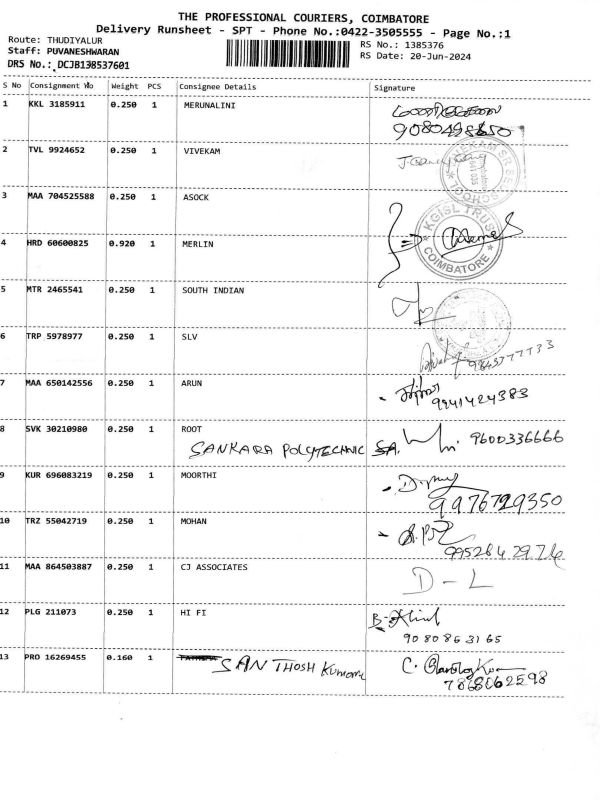 THE PROFESSIONAL COURIERS, COIMBATORE
Delivery Runsheet - SPT - Phone No.:0422-3505555 - Page No.:1
Route: THUDIYALUR
RS No.: 1385376
Staff: PUVANESHWARAN
RS Date: 20-Jun-2024
DRS No.: DCJB138537601
S No Consignment No Weight PCS Consignee Details Signature
1 KKL 3185911 0.250 1 MERUNALINI
2 TVL 9924652 0.250 1 VIVEKAM
3 MAA 704525588 0.250 1 ASOCK
KGISL TRUST
COIMBATORE
4 HRD 60600825 0.920 1 MERLIN
5 MTR 2465541 0.250 1 SOUTH INDIAN
6 TRP 5978977 0.250 1 SLV
7 MAA 650142556 0.250 1 ARUN
9941424383
8 SVK 30210980 0.250 1 ROOT
SANKARA POLYTECHNIC SA. 9600336666
9 KUR 696083219 0.250 1 MOORTHI
9976729350
10 TRZ 55042719 0.250 1 MOHAN
9952842976
11 MAA 864503887 0.250 1 CJ ASSOCIATES
D - L
12 PLG 211073 0.250 1 HI FI
9080863165
13 PRO 16269455 0.160 1 SANTHOSH Kumar
7868062598